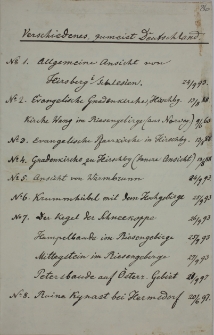 Verschiedenes, zumeist Deutschland.
No 1. Allgemeine Ansicht von
Hirschberg i. Schlesien. 24/9 93.
No 2. Evangelische Gnadenkirche, Hirschbg.
Kirche Wang im Riesengebirge (aus Norweg.)
No 3. Evangelische Pfarrkirche in Hirschbg.
No 4. Gnadenkirche zu Hirschbg (Innere Ansicht)
No 5. Ansicht von Warmbrunn
No 6. Krummhübel mit dem Hochgebirge
No 7. Der Kegel der Schneekoppe
Hampelbaude im Riesengebirge
Mittagstein im Riesengebirge
Petersbaude auf Österr. Gebiet
No 8. Ruine Kynast bei Hermsdorf